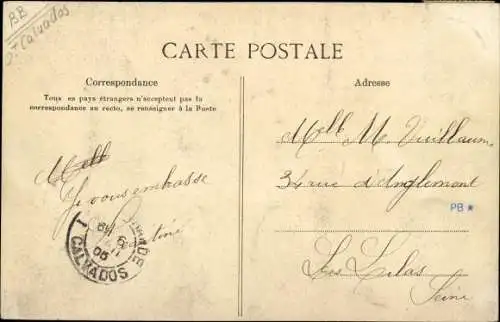 BB
Calvados
CARTE POSTALE
Correspondance
Tous les pays étrangers n'acceptent pas la
correspondance au recto, se renseigner à la Poste
Adresse
Melle M. Vuillaume
34 rue d'Anglemont
Les Lilas
Seine
Melle
Je vous embrasse
CALVADOS
PB ★